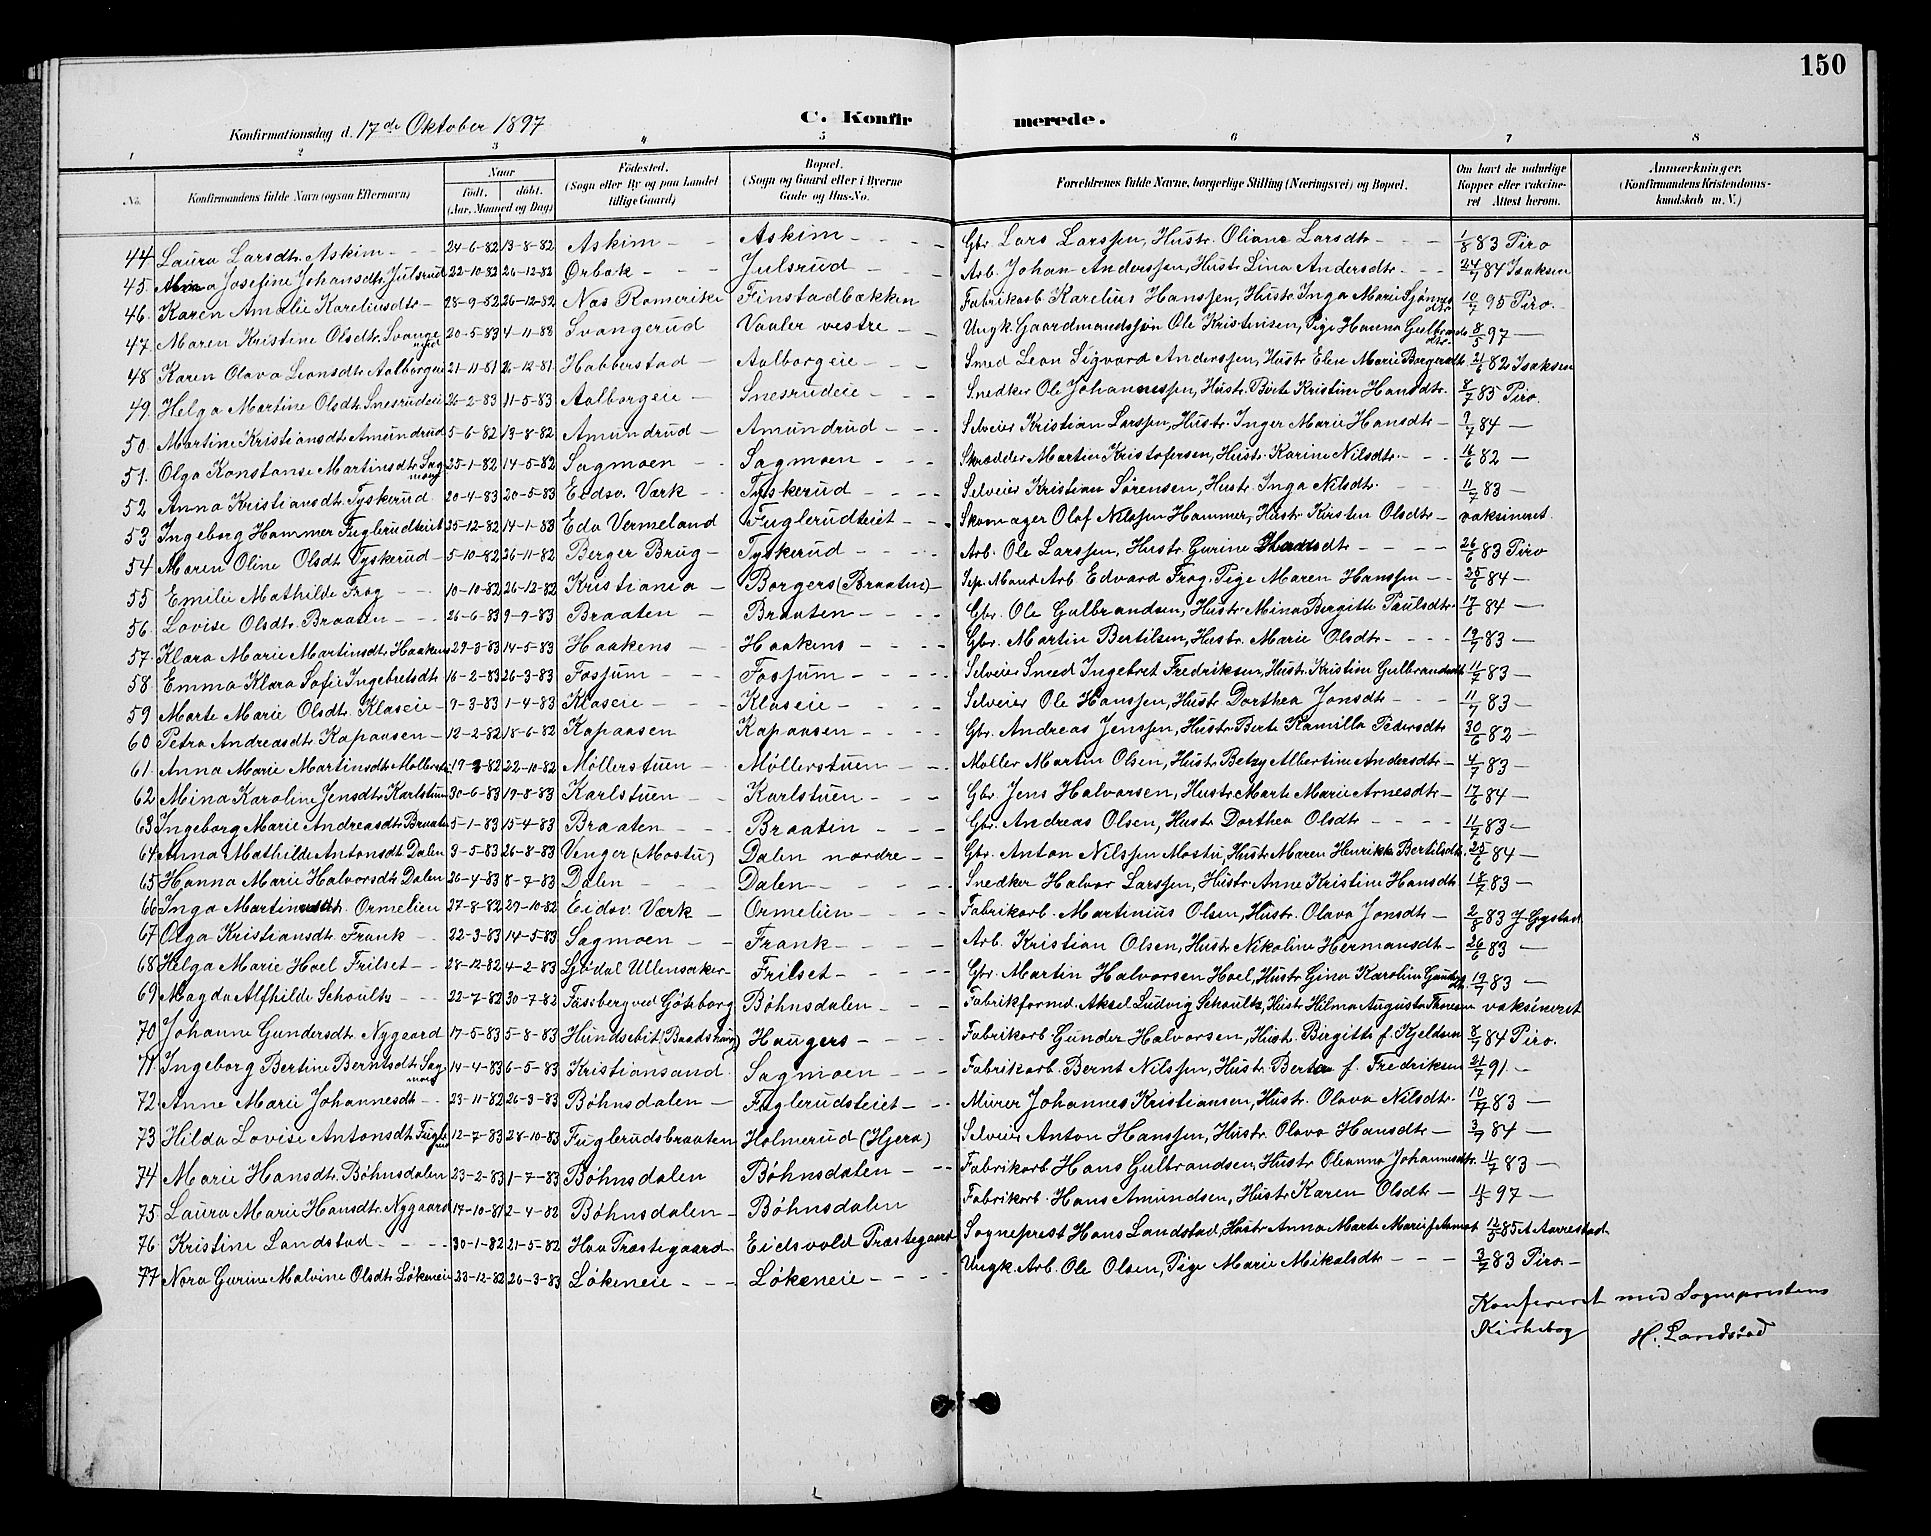 150
Konfirmationsdag d. 17de Oktober 1897 C. Konfirmerede.
1 2 3 4 5 6 7 8
No. Konfirmandens fulde Navn (ogsaa Efternavn) Naar født. døbt. (Aar, Maaned og Dag) Fødested. (Sogn eller By og paa Landet tillige Gaard) Bopæl. (Sogn og Gaard eller i Byerne Gade og Hus-No. Forældrenes fulde Navne, borgerlige Stilling (Næringsvei) og Bopæl. Om havt de naturlige Kopper eller vakcineret Attest herom. Anmærkninger. (Konfirmandens Kristendomskundskab m. V.)
44 Laura Larsdtr. Askim 24-6-82 13-8-82 Askim Askim Gbr. Lars Larssen, Hustr. Oliane Larsdtr 1/8 83 Piro
45 Josefine Johansdtr. Julsrud 22-10-82 26-12-82 Ørbæk Julsrud Arb. Johan Anderssen, Hustr Lina Andersdtr. 24/7 84 Isaksen
46. Karen Amalie Kareliusdtr 28-9-82 26-12-82 Næs Romerike Finstadbækken Fabrikarb Karelius Hanssen, Hustr. Inga Marie 10/7 95 Piro.
47. Maren Kristine Olsdtr. Svangerud 20-5-83 4-11-88 Svangerud Vaaler vestre Ungk. Gaardmandssøn Ole Kristensen, Pige Hanna Gulbrandsdtr. 8/5 97 —
48 Karen Olava Leonsdtr Aalborgeie 21-11-81 26-12-81 Habberstad Aalborgeie Smed Leon Sigvard Anderssen, Hustr Elen Marie Borgersdtr. 21/6 82 Isaksen
49. Helga Martine Olsdtr. Snesrudeie 26-2-83 11-5-83 Aalborgeie Snesrudeie Snedker Ole Johannessen, Hustr. Berte Kristine Hansdtr. 8/7 83 Piro.
50. Martine Kristiansdtr. Amundrud 5-6-82 13-8-82 Amundrud Amundrud Selveier Kristian Larssen, Hustr. Inger Marie Hansdtr 9/7 84 —
51. Olga Konstanse Martinsdtr. Sagmoen 25-1-82 14-5-82 Sagmoen Sagmoen Skrædder Martin Kristofersen, Hustr. Karine Nilsdtr. 16/6 82 —
52 Anna Kristiansdtr. Tyskerud 20-4-83 20-5-83 Eidsv. Værk Tyskerud Selveier Kristian Sørensen, Hustr. Inga Nilsdtr. 11/7 83 —
53 Ingeborg Hammer Fuglerudteiet 25-12-82 14-1-83 Eda Vermeland Fuglerudteiet Skomager Olaf Nilssen Hammer, Hustr. Kirsten Olsdtr vaksineret
54 Maren Oline Olsdt. Tyskerud 5-10-82 26-11-82 Berger Brug Tyskerud Arb. Ole Larssen, Hustr Gurine Hansdtr 26/6 83 Piro
55 Emilie Mathilde Frog 10-10-82 26-12-82 Kristiania Borgers (Braaten) Sep. Mand Arb. Edvard Frog. Pige Maren Hanssen 25/6 84 —
56. Lovise Olsdtr. Braaten 26-6-83 9-9-83 Braaten Braaten Gbr. Ole Gulbrandsen, Hustr Mina Bergitte Paulsdtr 17/6 84 —
57. Klara Marie Martinsdtr. Haakens 29-3-83 14-5-83 Haakens Haakens Gbr. Martin Bertilsen, Hustr. Marie Olsdtr 19/7 83 —
58 Emma Klara Sofie Ingebretsdtr 16-2-83 26-3-83 Fossum Fossum Selveier Smed Ingebret Fredriksen, Hustr. Kristine Gulbrandsdtr 11/7 83 —
59 Marte Marie Olsdtr. Klaseie 9-3-83 1-4-83 Klaseie Klaseie Selveier Ole Hanssen, Hustr. Dorthea Jonsdtr 11/7 83 —
60 Petra Andreasdtr Kapaasen 12-2-82 18-6-82 Kapaasen Kapaasen Gbr. Andreas Jenssen, Hustr. Berte Kamilla Pedersdtr 30/6 82 —
61. Anna Marie Martinsdtr. Møllerstu. 19-3-82 22-10-82 Møllerstuen Møllerstuen Møller Martin Olsen, Hustr Betzy Albertine Andersdtr 4/7 83 —
62 Mina Karoline Jensdtr. Karlstuen 30-6-83 19-8-83 Karlstuen Karlstuen Gbr. Jens Halvorsen, Hustr. Marte Marie Arnesdtr 17/6 84 —
63 Ingeborg Marie Andreasdtr Braaten 5-1-83 15-4-83 Braaten Braaten Gbr. Andreas Olsen, Hustr. Dorthea Olsdtr 11/7 83 —
64 Anna Mathilde Antonsdt. Dalen 3-5-83 26-8-83 Venger (Mostu) Dalen nordre Gbr. Anton Nilssen Mostu, Hustr. Maren Henrikke Bertilsdtr. 25/6 84 —
65 Hanna Marie Halvorsdt Dalen 26-4-83 8-7-83 Dalen Dalen Snedker Halvor Larssen, Hustr Anne Kristine Hansdtr 18/7 83 —
66 Inga Martinusdtr. Ormelien 27-8-82 29-10-82 Eidsv. Værk Ormelien Fabrikarb. Martinius Olsen, Hustr. Olava Jonsdtr 2/8 83 J. Gystad
67 Olga Kristiansdtr. Frank 22-3-83 14-5-83 Sagmoen Frank Arb. Kristian Olsen, Hustr Nikoline Hermansdtr 26/6 83 —
68 Helga Marie Hoel Frilset 28-12-82 4-2-83 Ljødal Ullensaker Frilset Gbr. Martin Halvorsen Hoel, Hustr. Gina Karoline 19/7 83 —
69 Magda Alfhilde Schoultz 22-7-82 30-7-82 Fassberg ved Göteborg Bøhnsdalen Fabrikformd. Aksel Ludvig Schoultz, Hustr Hilma Augusta Thoresen vaksineret
70 Johanne Gundersdtr. Nygaard 17-5-83 5-8-83 Hundsebit (Baadshaug) Haugers Fabrikarb Gunder Halvorsen, Hustr. Birgitte f. Kjeldsen 8/7 84 Piro.
71. Ingeborg Bertine Berntsdtr. Sagmoen 14-4-83 6-5-83 Kristiansand Sagmoen Fabrikarb. Bernt Nilssen, Hustr. Berta f. Fredriksen 21/7 91 —
72. Anne Marie Johannesdt 23-11-82 26-3-83 Bøhnsdalen Fuglerudsteiet Murer Johannes Kristiansen, Hustr. Olava Nilsdtr. 10/7 83 —
73 Hilda Lovise Antonsdt. Fuglerud 12-7-83 28-10-83 Fuglerudsbraaten Holmerud (Hjera) Selveier Anton Hanssen, Hustr. Olava Hansdtr 3/7 84 —
74 Marie Hansdtr. Bøhnsdalen 23-2-83 1-7-83 Bøhnsdalen Bøhnsdalen Fabrikarb Hans Gulbrandsen, Hustr Oleanna Johannesdtr. 11/7 83 —
75. Laura Marie Hansdtr. Nygaard 17-10-81 2-4-82 Bøhnsdalen Bøhnsdalen Fabrikarb. Hans Amundsen, Hustr. Karen Olsdtr 4/5 97 —
76 Kristine Landstad 30-1-82 21-5-82 Hvaa Præstegaard Eidsvold Præstegaard Sogneprest Hans Landstad, Hustr Anna Marte Marie f. 85 Aarrestad
77 Nora Gurine Malvine Olsdtr. Løkeneie 23-12-82 26-3-83 Løkeneie Løkeneie Ungk. Arb. Ole Olsen, Pige Marie Mikalsdtr 3/7 83 Piro
Konfereret med Sogneprestens
Kirkebog H. Landstad